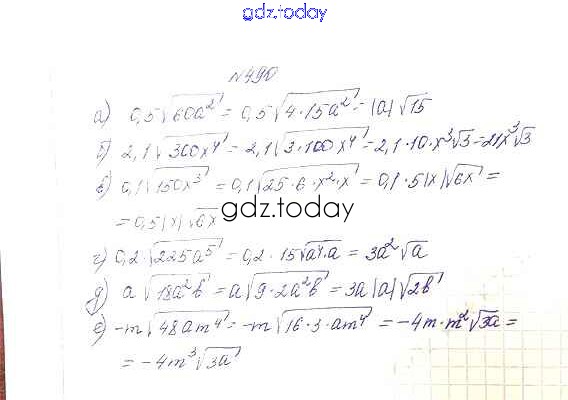 gdz.today
№490
а) 0,5√60a² = 0,5√4·15a² = |a|√15
б) 2,1√300x⁴ = 2,1√3·100x⁴ = 2,1·10·x²√3 = 21x²√3
в) 0,1√150x³ = 0,1√25·6·x²·x = 0,1·5|x|√6x =
= 0,5|x|√6x
gdz.today
г) 0,2·√225a⁵ = 0,2·15√a⁴·a = 3a²√a
д) a√18a²b = a√9·2a²b = 3a|a|√2b
е) -m√48am⁴ = -m√16·3·am⁴ = -4m·m²√3a =
= -4m³√3a